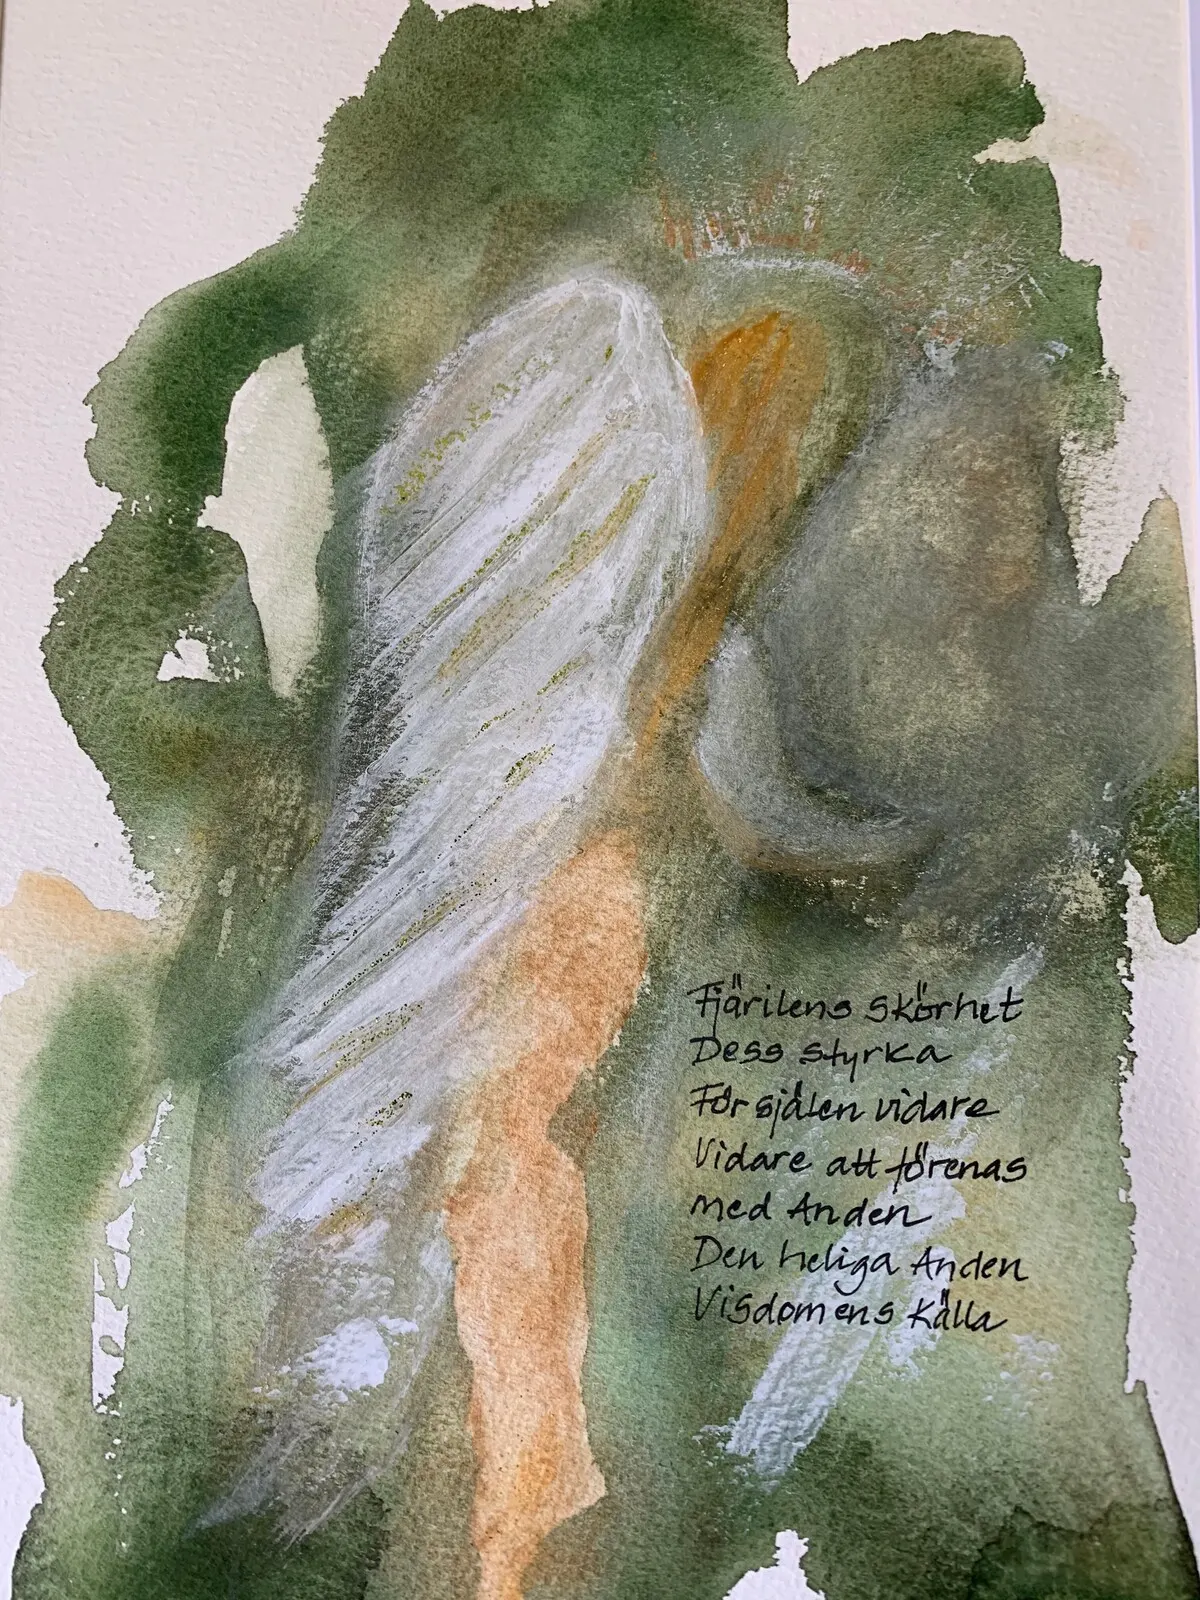 Fjärilens skörhet
Dess styrka
För själen vidare
Vidare att förenas
med Anden
Den heliga Anden
Visdomens Källa